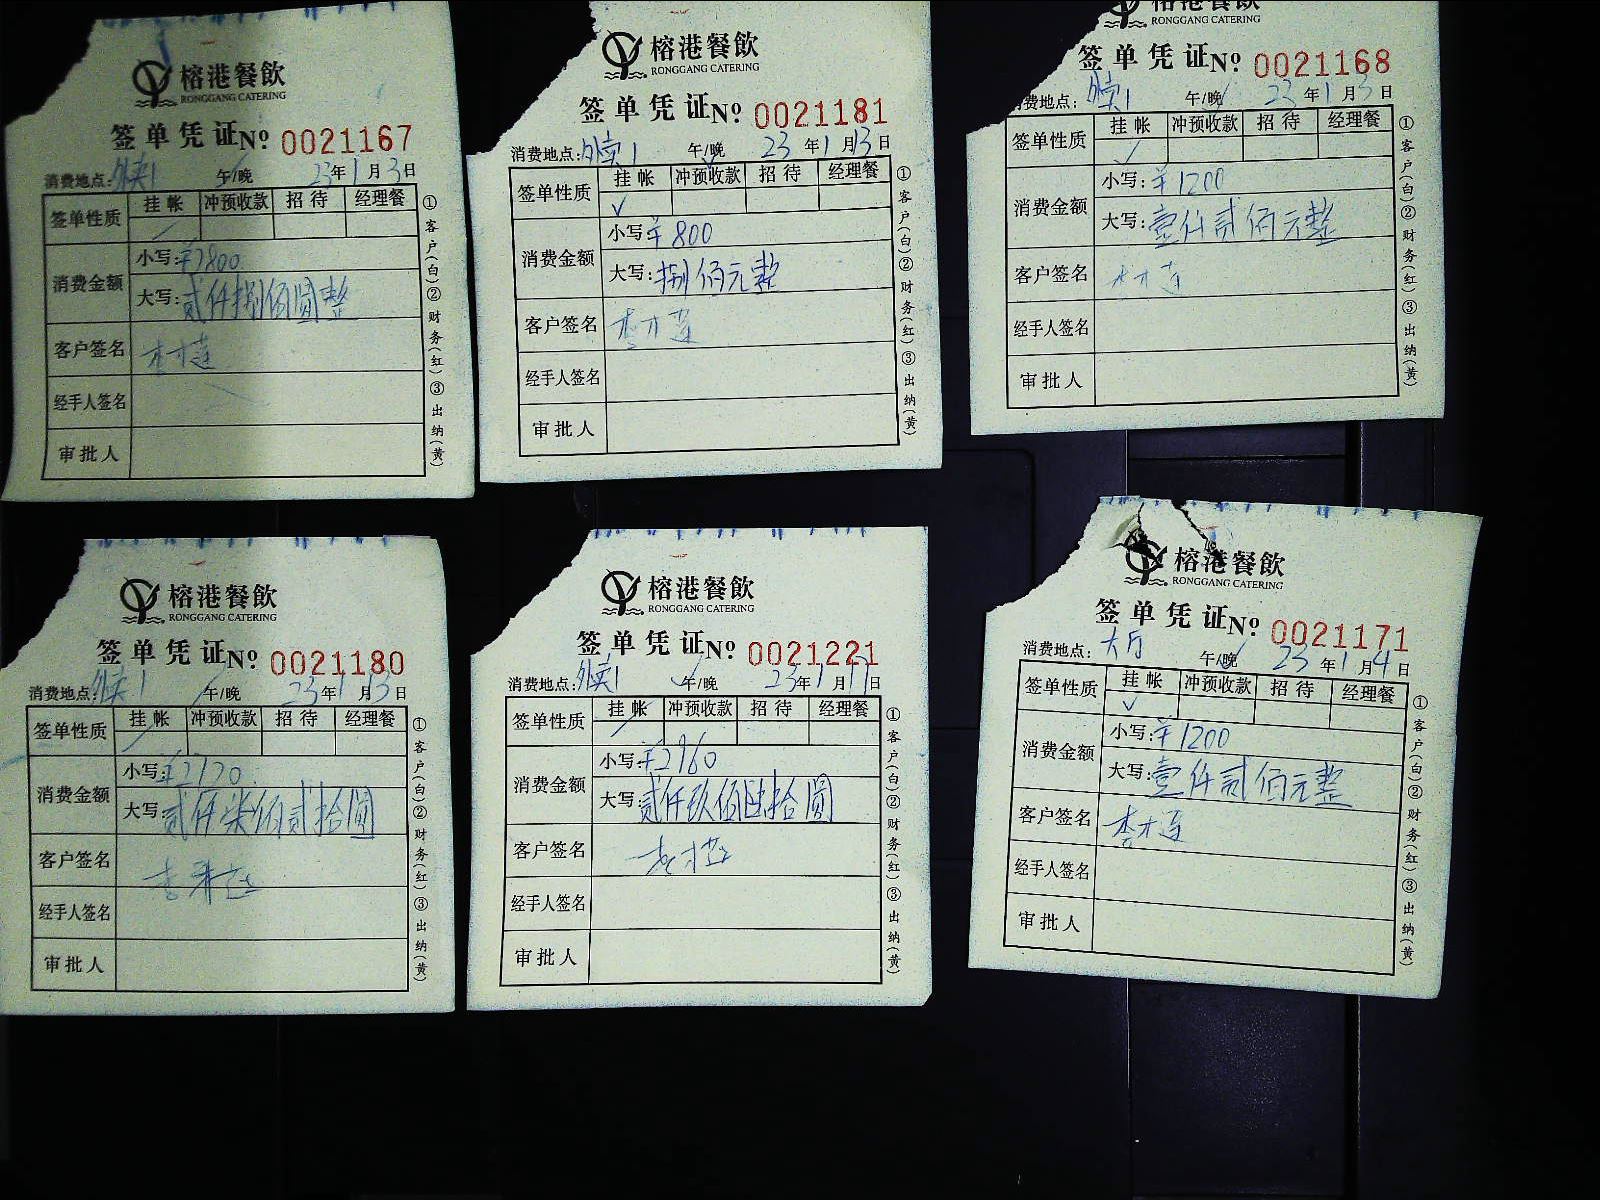 榕港餐飲
RONGGANG CATERING
签单凭证 No 0021167
消费地点: 外卖1 午/晚 23年1月3日
签单性质 挂帐 冲预收款 招待 经理餐
消费金额
小写: ¥2800
大写: 贰仟捌佰圆整
客户签名
经手人签名
审批人
①客户(白)②财务(红)③出纳(黄)
榕港餐飲
RONGGANG CATERING
签单凭证 No 0021181
消费地点: 外卖1 午/晚 23年1月13日
签单性质 挂帐 冲预收款 招待 经理餐
消费金额
小写: ¥800
大写: 捌佰元整
客户签名 李才莲
经手人签名
审批人
①客户(白)②财务(红)③出纳(黄)
榕港餐飲
RONGGANG CATERING
签单凭证 No 0021168
消费地点: 外卖1 午/晚 23年1月3日
签单性质 挂帐 冲预收款 招待 经理餐
消费金额
小写: ¥1200
大写: 壹仟贰佰元整
客户签名
经手人签名
审批人
①客户(白)②财务(红)③出纳(黄)
榕港餐飲
RONGGANG CATERING
签单凭证 No 0021180
消费地点: 外卖1 午/晚 23年1月13日
签单性质 挂帐 冲预收款 招待 经理餐
消费金额
小写: ¥2720
大写: 贰仟柒佰贰拾圆
客户签名
经手人签名
审批人
①客户(白)②财务(红)③出纳(黄)
榕港餐飲
RONGGANG CATERING
签单凭证 No 0021221
消费地点: 外卖1 午/晚 23年1月17日
签单性质 挂帐 冲预收款 招待 经理餐
消费金额
小写: ¥2960
大写: 贰仟玖佰陆拾圆
客户签名
经手人签名
审批人
①客户(白)②财务(红)③出纳(黄)
榕港餐飲
RONGGANG CATERING
签单凭证 No 0021171
消费地点: 大厅 午/晚 23年1月4日
签单性质 挂帐 冲预收款 招待 经理餐
消费金额
小写: ¥1200
大写: 壹仟贰佰元整
客户签名 李才莲
经手人签名
审批人
①客户(白)②财务(红)③出纳(黄)